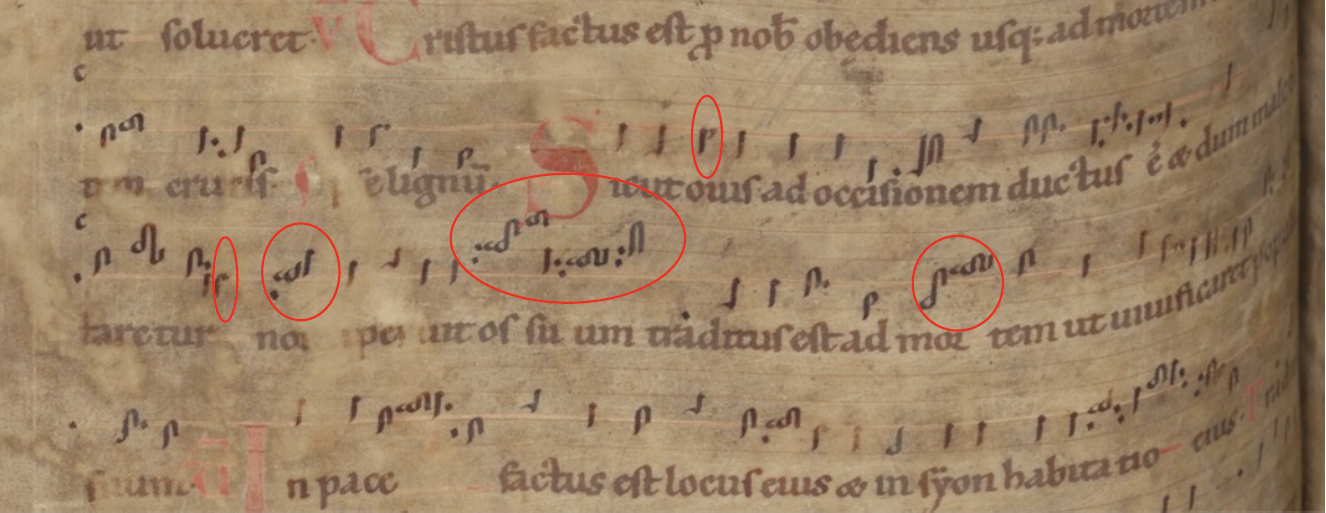 ut solueret. V Cristus factus est p nob obediens usq; ad mortem
c
tem crucis lignū. Sicut ouis ad occisionem ductus ē & dum male
c
taretur non aperuit os suum traditus est ad mortem ut uiuificaret pop
suum. In pace factus est locus eius & in syon habitatio eius. Trad